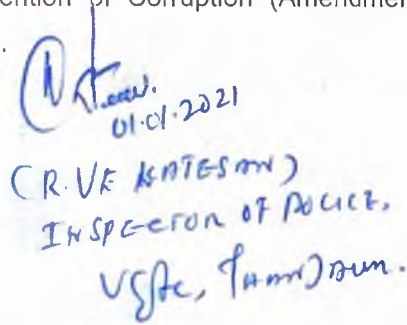 ention of Corruption (Amendmen
01.01.2021
(R.VENKATESAN)
INSPECTOR OF POLICE,
V&AC,